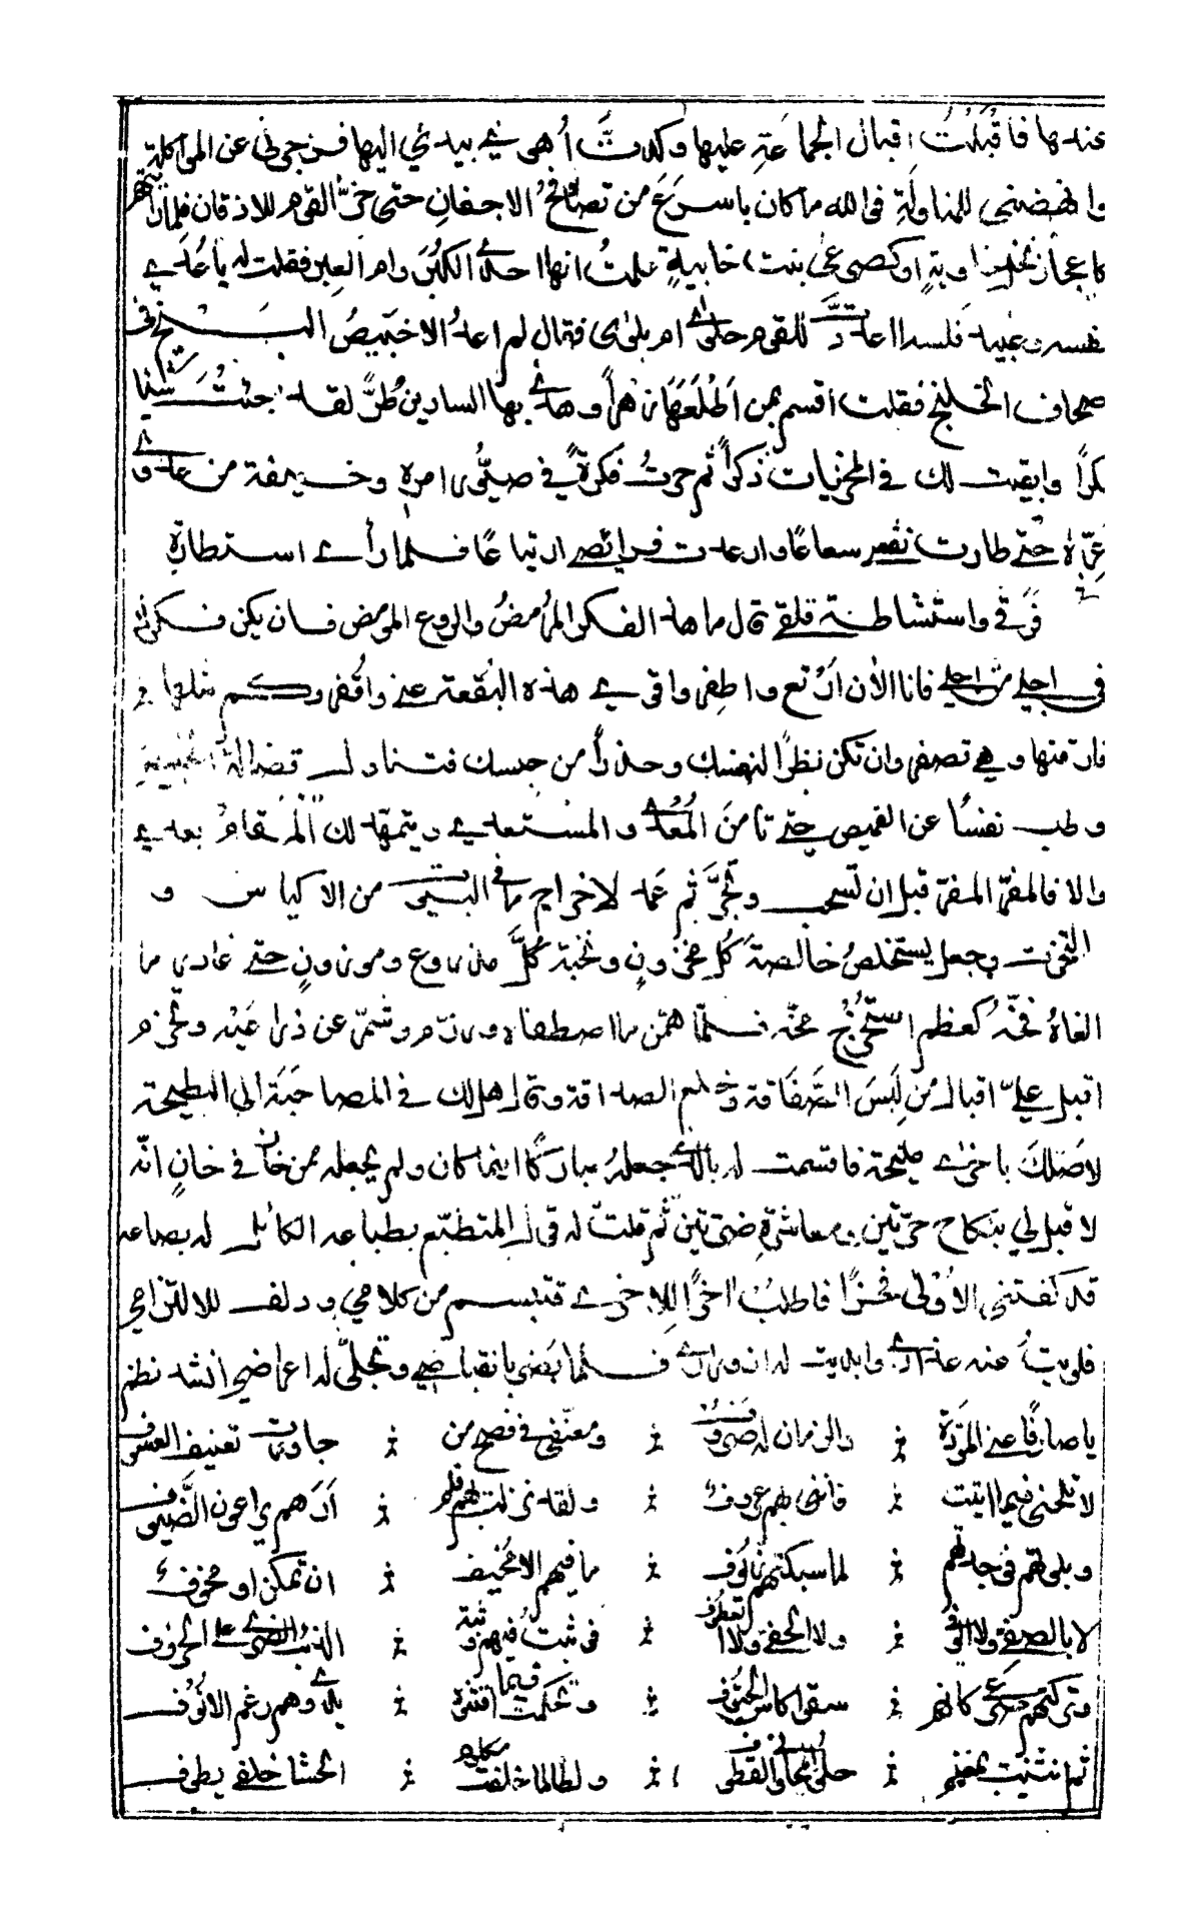 عندها فأقبلت اقبال الجماعة عليها وكدت أهوى بيدي اليها فزجرني عن المواكلة
وانهضني للمناولة فوالله ما كان باسرع من تصافح الاجفان حتى خر القوم للاذقان فلما رأيتهم
كاعجاز نخل خاوية او كصرعى بنت خابية علمت انها احدى الكبر وام العبر فقلت له يا عدي
نفسه وعبيد فلسه اأعددت للقوم حلوى ام بلوى فقال لم اعد الا خبيص البنج في
صحاف الخلنج فقلت اقسم بمن اطلعها زهرا وهدى بها السارين طرا لقد جئت شيئا
نكرا وابقيت لك في المخزيات ذكرا ثم حرت فكرة في صيور امره وخيفة من عدوى
عره حتى طارت نفسي شعاعا وارعدت فرائصي ارتياعا فلما رأى استطارة
فرقي واستشاطة قلقي قال ما هذا الفكر المرمض والروع المومض فان يكن فكرك
في اجلي من اجلي فانا الأن ارتع واطفر واقوي هذه البقعة عني واقفر وكم مثلها
فارقتها وهي تصفر وان تكن نظرا لنفسك وحذرا من حبسك فتناول فضالة الخبيص
وطب نفسا عن القميص حتى تأمن المعدى والمستعدي ويتمهد لك المقام بعدي
والا فالمفر المفر قبل ان تسحب وتجر ثم عمد لاخراج ما في البيوت من الاكياس و
التخوت وجعل يستخلص خالصة كل مخزون ونخبة كل مذروع وموزون حتى غادر ما
الغاه فخه كعظم استخرج مخه فلما همن ما اصطفاه ورزم وشمر عن ذراعيه وتحزم
اقبل علي اقبال من لبس الصفاقة وخلع الصداقة وقال هل لك في المصاحبة الى البطيحة
لاصلك باخرى مليحة فاقسمت له بالذي جعله مباركا اينما كان ولم يجعله ممن خان في خان انه
لا قبل لي بنكاح حرتين ومعاشرة ضرتين ثم قلت له قول المتطبع بطباعه الكائل له بصاعه
قد كفتني الاولى فخرا فاطلب اخرا للاخرى فتبسم من كلامي ودلف لالتزامي
فلويت عنه عذاري وابديت له ازوراري فلما بصر بانقباضي وتجلى له اعراضي انشد نظم
يا صارفا عني المودة والزمان له صروف ومعنفي في فضح من جاورت تعنيف العسوف
لا تلحني فيما اتيت فانني بهم عروف ولقد نزلت بهم فلم ارهم يراعون الضيوف
وبلوتهم فوجدتهم لما سبكتهم زيوف ما فيهم الا مخيف ان تمكن او مخوف
لا بالصفي ولا الوفي ولا الحفي ولا العطوف فوثبت فيهم وثبة الذئب الضري على الخروف
وتركتهم صرعى كانهم سقوا كاس الحتوف وتحكمت فيما اقتنوه يدي وهم رغم الانوف
ثم انثنيت بمغنم حلو المجاني والقطوف ولطالما خلفت مكلوم الحشا خلفي يطوف